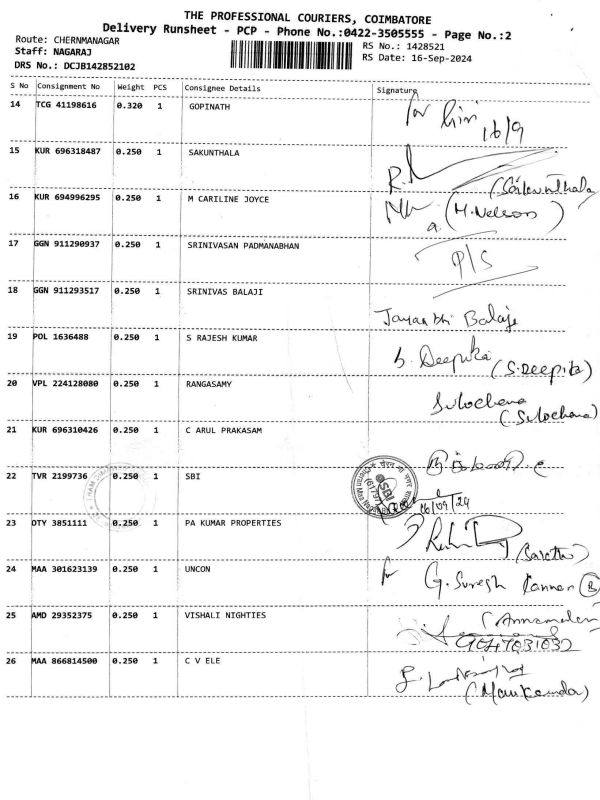 THE PROFESSIONAL COURIERS, COIMBATORE
Delivery Runsheet - PCP - Phone No.:0422-3505555 - Page No.:2
Route: CHERNMANAGAR
RS No.: 1428521
Staff: NAGARAJ
RS Date: 16-Sep-2024
DRS No.: DCJB142852102
S No Consignment No Weight PCS Consignee Details Signature
14 TCG 41198616 0.320 1 GOPINATH for him 16/9
15 KUR 696318487 0.250 1 SAKUNTHALA
16 KUR 694996295 0.250 1 M CARILINE JOYCE (M.Nelson)
17 GGN 911290937 0.250 1 SRINIVASAN PADMANABHAN P/S
18 GGN 911293517 0.250 1 SRINIVAS BALAJI Balaji
19 POL 1636488 0.250 1 S RAJESH KUMAR S. Deepika (S.DEEPIKA)
20 VPL 224128080 0.250 1 RANGASAMY Sulochana
(Sulochana)
21 KUR 696310426 0.250 1 C ARUL PRAKASAM
22 TVR 2199736 0.250 1 SBI SBI 16/09/24
23 OTY 3851111 0.250 1 PA KUMAR PROPERTIES
24 MAA 301623139 0.250 1 UNCON for G. Suresh Kannan
25 AMD 29352375 0.250 1 VISHALI NIGHTIES
26 MAA 866814500 0.250 1 C V ELE